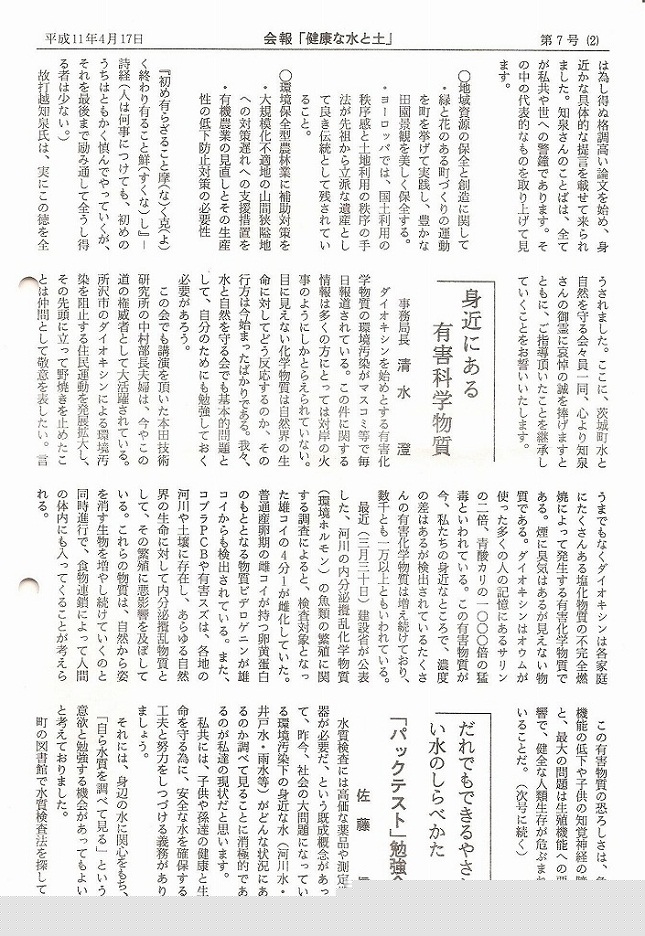 平成11年4月17日
会報「健康な水と土」
第7号 (2)
は為し得ぬ格調高い論文を始め、身
近かな具体的な提言を載せて来られ
ました。知泉さんのことばは、全て
が私共や世への警鐘であります。そ
の中の代表的なものを取り上げて見
ます。
○地域資源の保全と創造に関して
・緑と花のある町づくりの運動
を町を挙げて実践し、豊かな
田園景観を美しく保全する。
・ヨーロッパでは、国土利用の
秩序感と土地利用の秩序の手
法が先祖から立派な遺産とし
て良き伝統として残されてい
ること。
○環境保全型農林業に補助対策を
・大規模化不適地の山間狭隘地
への対策遅れへの支援措置を
・有機農業の見直しとその生産
性の低下防止対策の必要性
『初め有らざること靡(な)く克(よ)
く終わり有ること鮮(すくな)し』ー
詩経(人は何事につけても、初めの
うちはともかく慎んでやっていくが、
それを最後まで励み通して全うし得
る者は少ない。)
故打越知泉氏は、実にこの徳を全
うされました。ここに、茨城町水と
自然を守る会々員一同、心より知泉
さんの御霊に哀悼の誠を捧げますと
ともに、ご指導頂いたことを継承し
ていくことをお誓いいたします。
身近にある
有害科学物質
事務局長 清水 澄
ダイオキシンを始めとする有害化
学物質の環境汚染がマスコミ等で毎
日報道されている。この件に関する
情報は多くの方にとっては対岸の火
事のようにしかとらえられていない。
目に見えない化学物質は自然界の生
命に対してどう反応するのか、その
行方は今始まったばかりである。我々、
水と自然を守る会でも基本的問題と
して、自分のためにも勉強しておく
必要があろう。
この会でも講演を頂いた本田技術
研究所の中村部長夫婦は、今やこの
道の権威者として大活躍されている。
所沢市のダイオキシンによる環境汚
染を阻止する住民運動を発展拡大し、
その先頭に立って野焼きを止めたこ
とは仲間として敬意を表したい。言
うまでもなくダイオキシンは各家庭
にたくさんある塩化物質の不完全燃
焼によって発生する有害化学物質で
ある。煙に臭気はあるが見えない物
質である。ダイオキシンはオウムが
使った多くの人の記憶にあるサリン
の二倍、青酸カリの一〇〇〇倍の猛
毒といわれている。この有害物質が
今、私たちの身近なところで、濃度
の差はあるが検出されているたくさ
んの有害化学物質は増え続けており、
数千とも一万以上ともいわれている。
最近(三月三十日)建設省が公表
した、河川の内分泌攪乱化学物質
(環境ホルモン)の魚類の繁殖に関
する調査によると、検査対象となっ
た雄コイの4分1が雌化していた。
普通産卵期の雌コイが持つ卵黄蛋白
のもととなる物質ビデロゲニンが雄
コイからも検出されている。また、
コプラPCBや有害スズは、各地の
河川や土壌に存在し、あらゆる自然
界の生命に対して内分泌攪乱物質と
して、その繁殖に悪影響を及ぼして
いる。これらの物質は、自然から姿
を消す生物を増やし続けていくのと
同時進行で、食物連鎖によって人間
の体内にも入ってくることが考えら
れる。
この有害物質の恐ろしさは、
機能の低下や子供の知覚神経の
と、最大の問題は生殖機能への
響で、健全な人類生存が危ぶまれ
いることだ。(次号に続く)
だれでもできるやさ
い水のしらべかた
「パックテスト」勉強
佐藤
水質検査には高価な薬品や測定
器が必要だ、という既成概念があっ
て、昨今、社会の大問題になってい
る環境汚染下の身近な水(河川水・
井戸水・雨水等)がどんな状況にあ
るのか調べて見ることに消極的であ
るのが私達の現状だと思います。
私共には、子供や孫達の健康と生
命を守る為に、安全な水を確保する
工夫と努力をしつづける義務があり
ましょう。
それには、身辺の水に関心をもち、
「自ら水質を調べて見る」という
意欲と勉強する機会があってもよい
と考えておりました。
町の図書館で水質検査法を探して